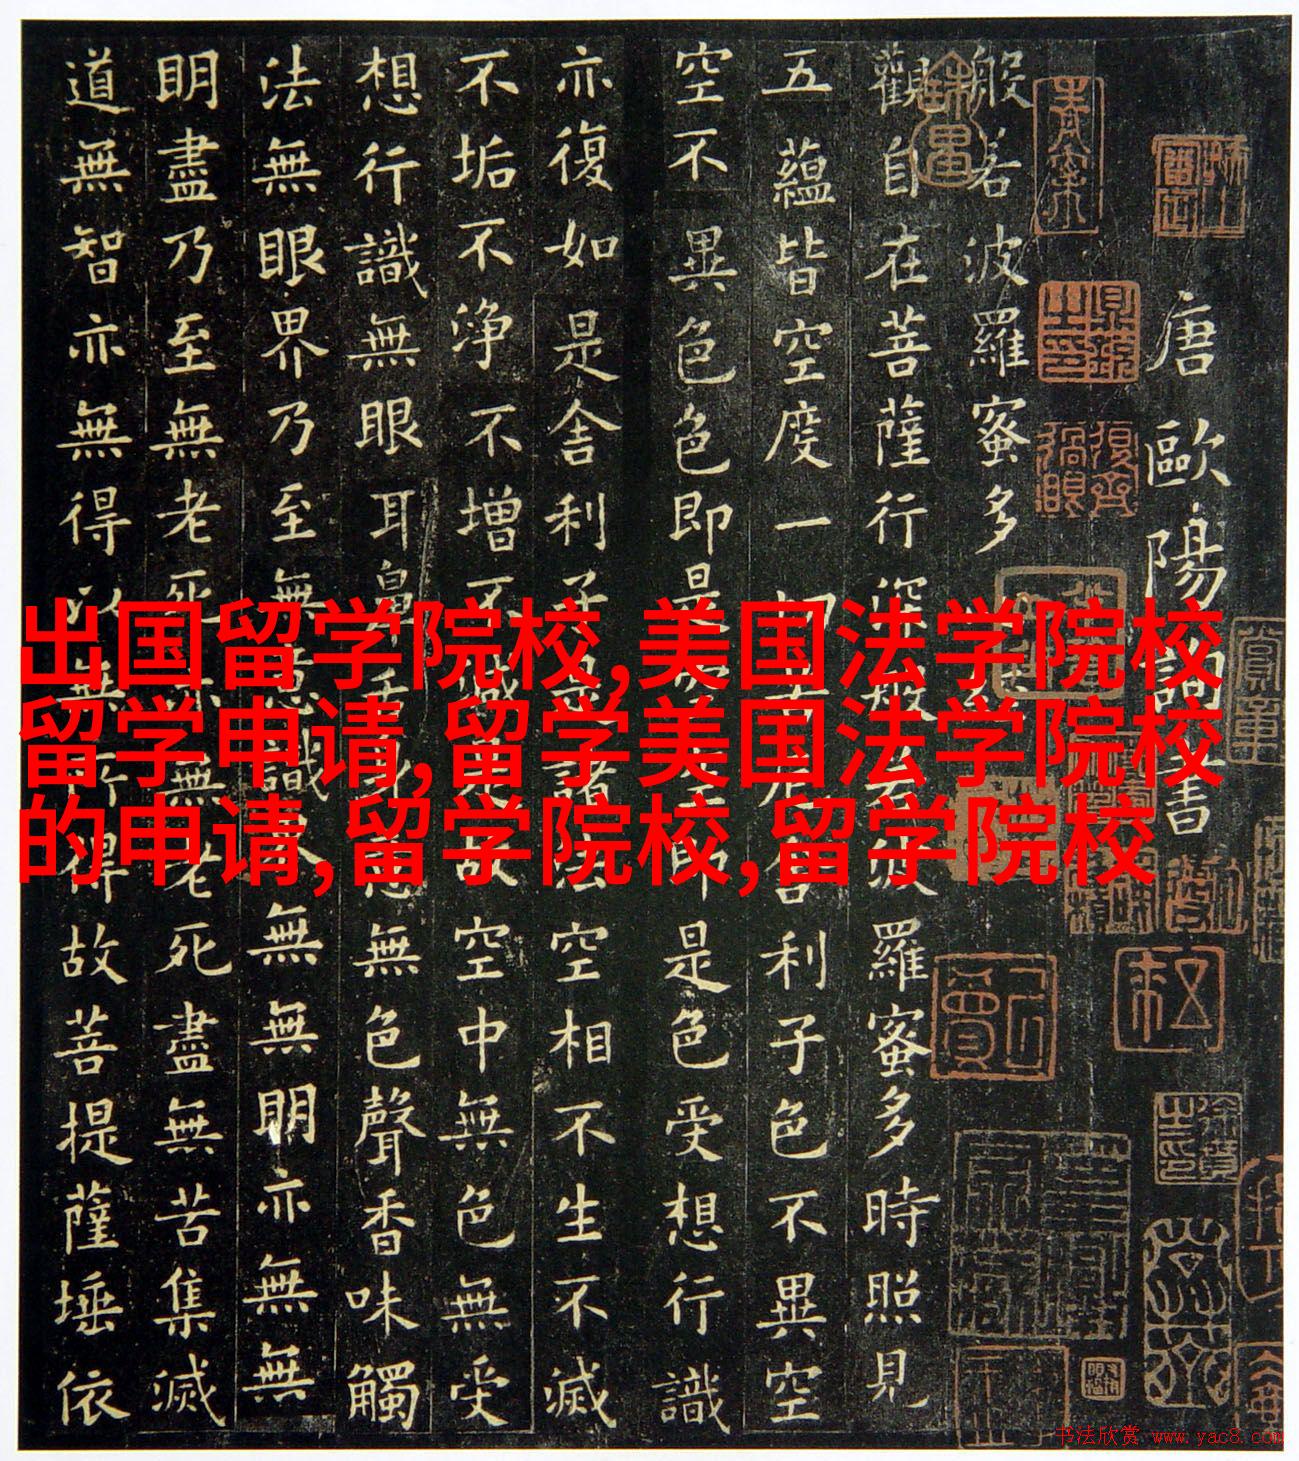 唐歐陽詢書
般若波羅蜜多
觀自在菩薩行深般若波羅蜜多時照見
五蘊皆空度一切苦厄舍利子色不異空
空不異色色即是空空即是色受想行識
亦復如是舍利子是諸法空相不生不滅
不垢不淨不增不減是故空中無色無受
想行識無眼耳鼻舌身意無色聲香味觸
法無眼界乃至無意識界無無明亦無無
明盡乃至無老死亦無老死盡無苦集滅
道無智亦無得以無所得故菩提薩埵依
出国留学院校,美国法学院校
留学申请,留学美国法学院校
的申请,留学院校,留学院校
书法欣赏 www.yac8.com